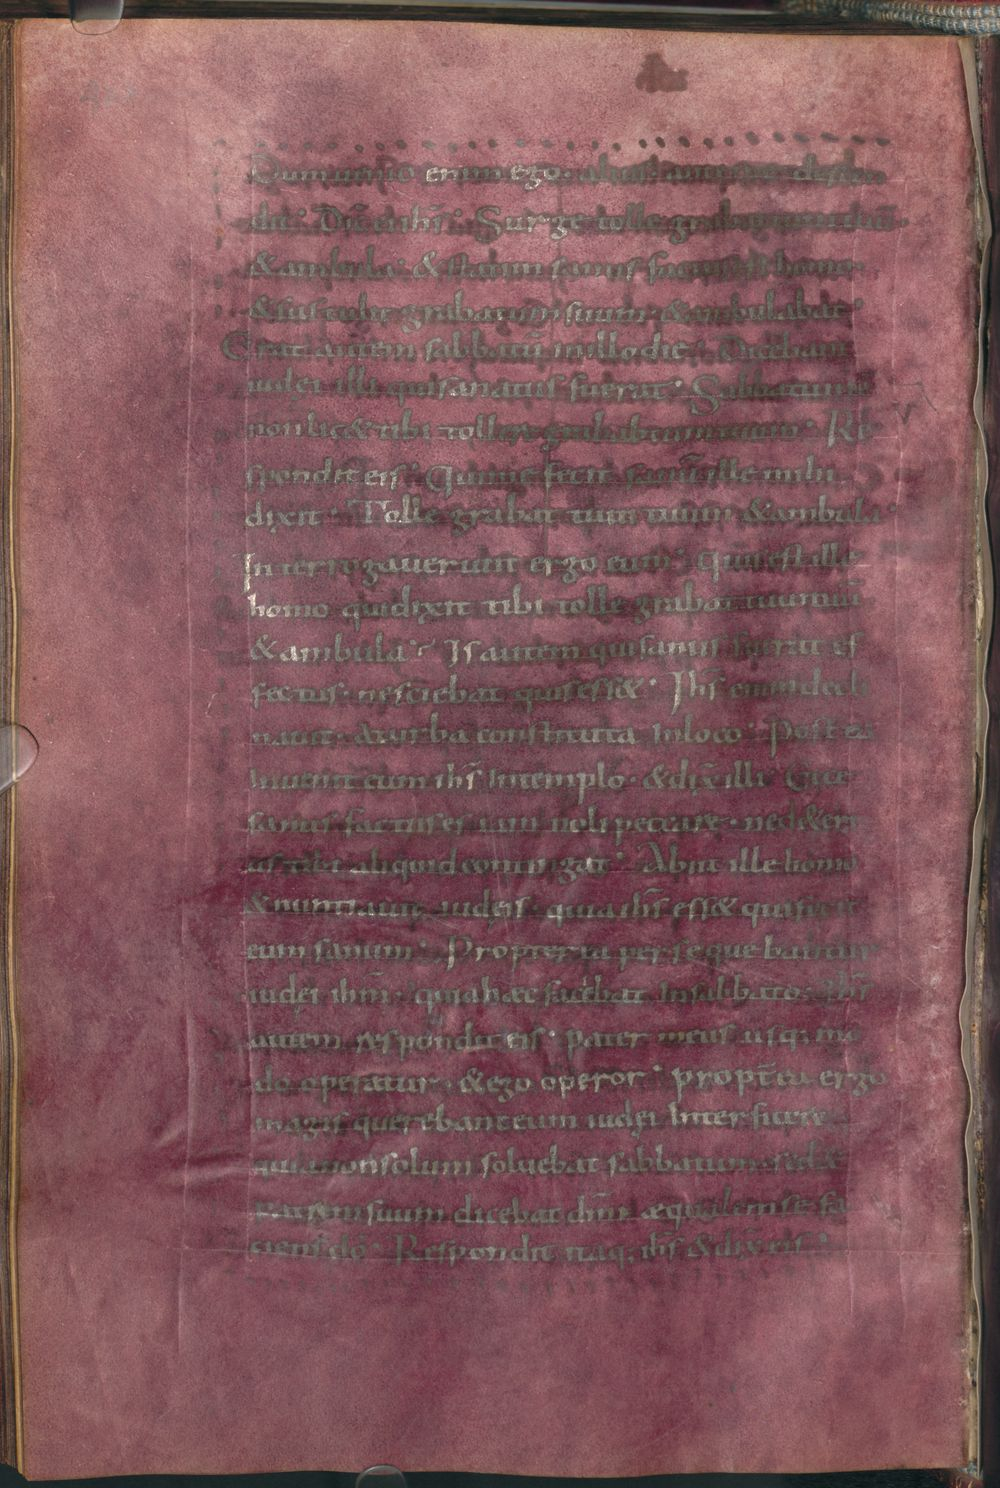 Dum uenio enim ego · alius ante me descen
dit · Dix̅ ei ih̅s · Surge tolle grabattum tuu̅
& ambula · & statim sanus factus est homo
& sustulit grabatum suum · & ambulabat ·
Erat autem sabbatu̅ in illo die · Dicebant
iudęi illi qui sanatus fuerat · Sabbatum ē
non lic& tibi tollere grabattum tuum · Re
spondit eis · Qui me fecit sanu̅ ille mihi
dixit · Tolle grabattum tuum & ambula ·
Interrogauerunt ergo eum · quis est ille
homo qui dixit tibi tolle grabattum tuu̅
& ambula · Is autem qui sanus fuerat ef
fectus · nesciebat quis ess& · Ih̅s enim decli
nauit · a turba constituta In loco · Postea
Inuenit eum ih̅s In templo · & dix̅ illi Ecce
sanus factus es iam noli peccare · ne d&eri
us tibi aliquid contingat · Abiit ille homo
& nuntiauit iudęis · quia ih̅s ess& qui fecit
eum sanum · Propterea persequebantur
iudęi ih̅m · quia hæc faciebat In sabbato · Ih̅s
autem respondit eis · pater meus usq; mo
do operatur · & ego operor · propt̅ea ergo
magis querebant eum iudęi Interficere
quia non solum soluebat sabbatum · sed &
patrem suum dicebat dm̅ æqualem se fa
ciens dō · Respondit itaq; ih̅s & dix̅ eis ·